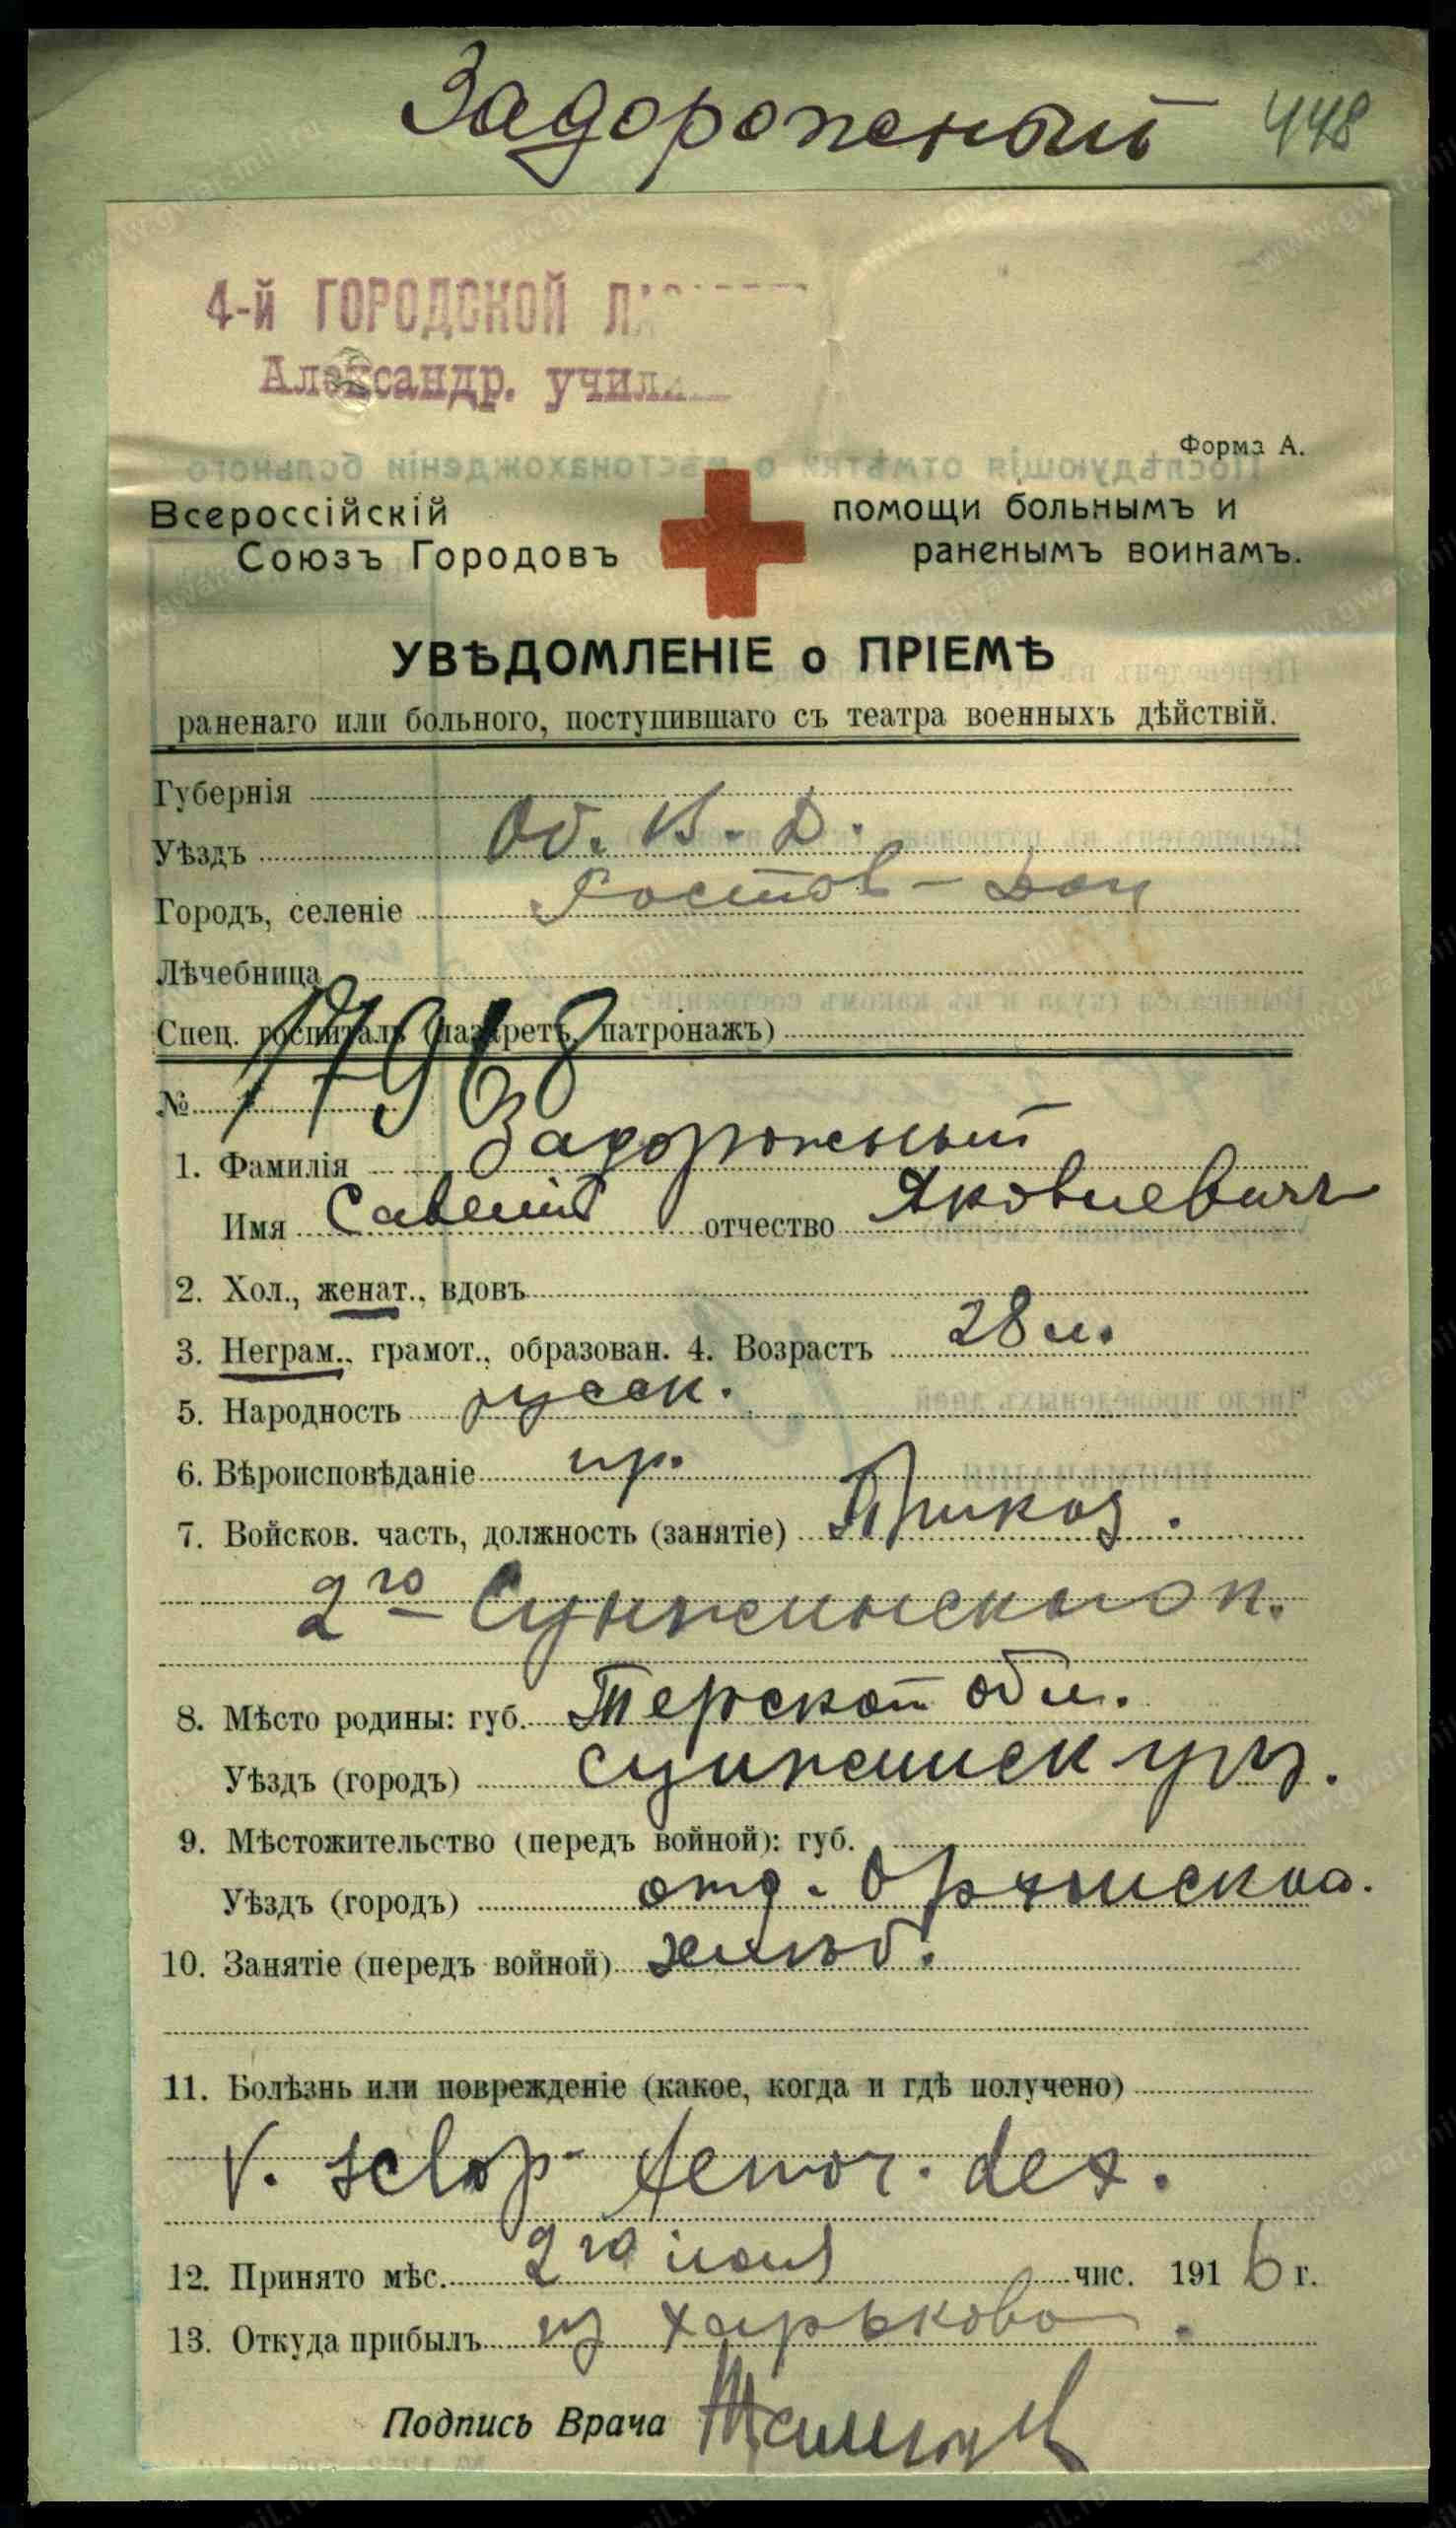 Задорожный 448
4-й ГОРОДСКОЙ
Александр.
Форма А.
Всероссійскій
Союзъ Городовъ
помощи больнымъ и
раненымъ воинамъ.
УВѢДОМЛЕНІЕ о ПРІЕМѢ
раненаго или больного, поступившаго съ театра военныхъ дѣйствій.
Губернія
Уѣздъ Об. В. Д.
Городъ, селеніе Ростов-Дон
Лѣчебница
Спец. госпиталь (лазаретъ, патронажъ)
№ 17968
1. Фамилія Задорожный
Имя Савелій отчество Яковлевичъ
2. Хол., женат., вдовъ
3. Неграм., грамот., образован. 4. Возрастъ 28 л.
5. Народность русск.
6. Вѣроисповѣданіе пр.
7. Войсков. часть, должность (занятіе) Приказ.
2го Сунженского п.
8. Мѣсто родины: губ. Терской обл.
Уѣздъ (городъ) Сунженск
9. Мѣстожительство (передъ войной): губ.
Уѣздъ (городъ) отд.
10. Занятіе (передъ войной) хлѣб.
11. Болѣзнь или поврежденіе (какое, когда и гдѣ получено)
V. sclop. femor. dex.
12. Принято мѣс. 2го чис. 1916 г.
13. Откуда прибылъ из Харькова.
Подпись Врача